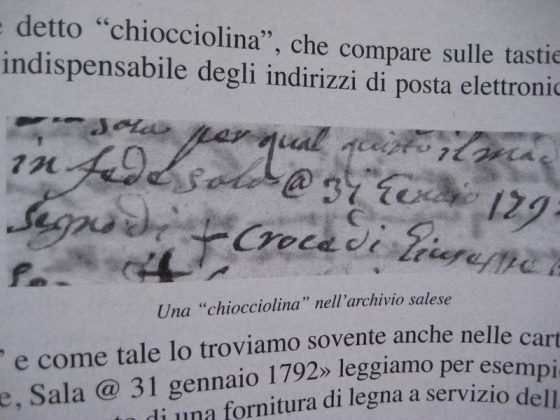 e detto “chiocciolina”, che compare sulle tastie
indispensabile degli indirizzi di posta elettronic
sola per qual quisto il mac
in fede Sala @ 31 Genaio 179
Segno di + Croce di Giuseppe
Una “chiocciolina” nell’archivio salese
” e come tale lo troviamo sovente anche nelle cart
e, Sala @ 31 gennaio 1792» leggiamo per esempio
di una fornitura di legna a servizio dell